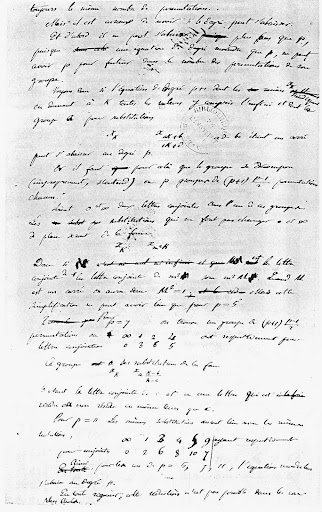 toujours le même nombre de permutations.
Mais il est curieux de savoir si le degré peut s'abaisser.
Et d'abord il ne peut s'abaisser plus bas que p,
puisque une équation de degré moindre que p ne peut
avoir p pour facteur dans le nombre des permutations de son
groupe.
Voyons donc si l'équation de degré p+1 dont les
en donnant à K toutes les valeurs y compris l'infini et dont le
groupe a pour substitutions
x K x aK+b
cK+d ad-bc étant un carré
peut s'abaisser au degré p.
Or il faut pour cela que le groupe se décompose
(improprement, s'entend) en p groupes de (p+1) p-1 permutations
chacun.
Soient o et ∞ deux lettres conjointes dans l'un de ces groupes.
Les substitutions qui ne font pas changer o et ∞
de place sont de la forme
x K x m²K
Donc si M la lettre
conjointe de 1 la lettre conjointe de m² sera m²M. Quand M
est un carré on aura donc M² = 1. cette
simplification ne peut avoir lieu que pour p = 5.
Pour p = 7 on trouve un groupe de (p+1) p-1
permutations où ∞ 1 2 4 ont respectivement pour
lettres conjointes 0 3 6 5
Ce groupe a ses substitutions de la forme
x K x a K-b
K-c
b étant la lettre conjointe de c et a une lettre qui est
résidu ou non résidu en même temps que c.
Pour p = 11 les mêmes substitutions auront lieu avec les mêmes
notations,
∞ 1 3 4 5 9 ayant respectivement
pour conjointes 0 2 6 8 10 7
Ainsi pour les cas de p = 5, 7, 11, l'équation modulaire
s'abaisse au degré p.
En toute rigueur, cette réduction n'est pas possible dans les cas
plus élevés.